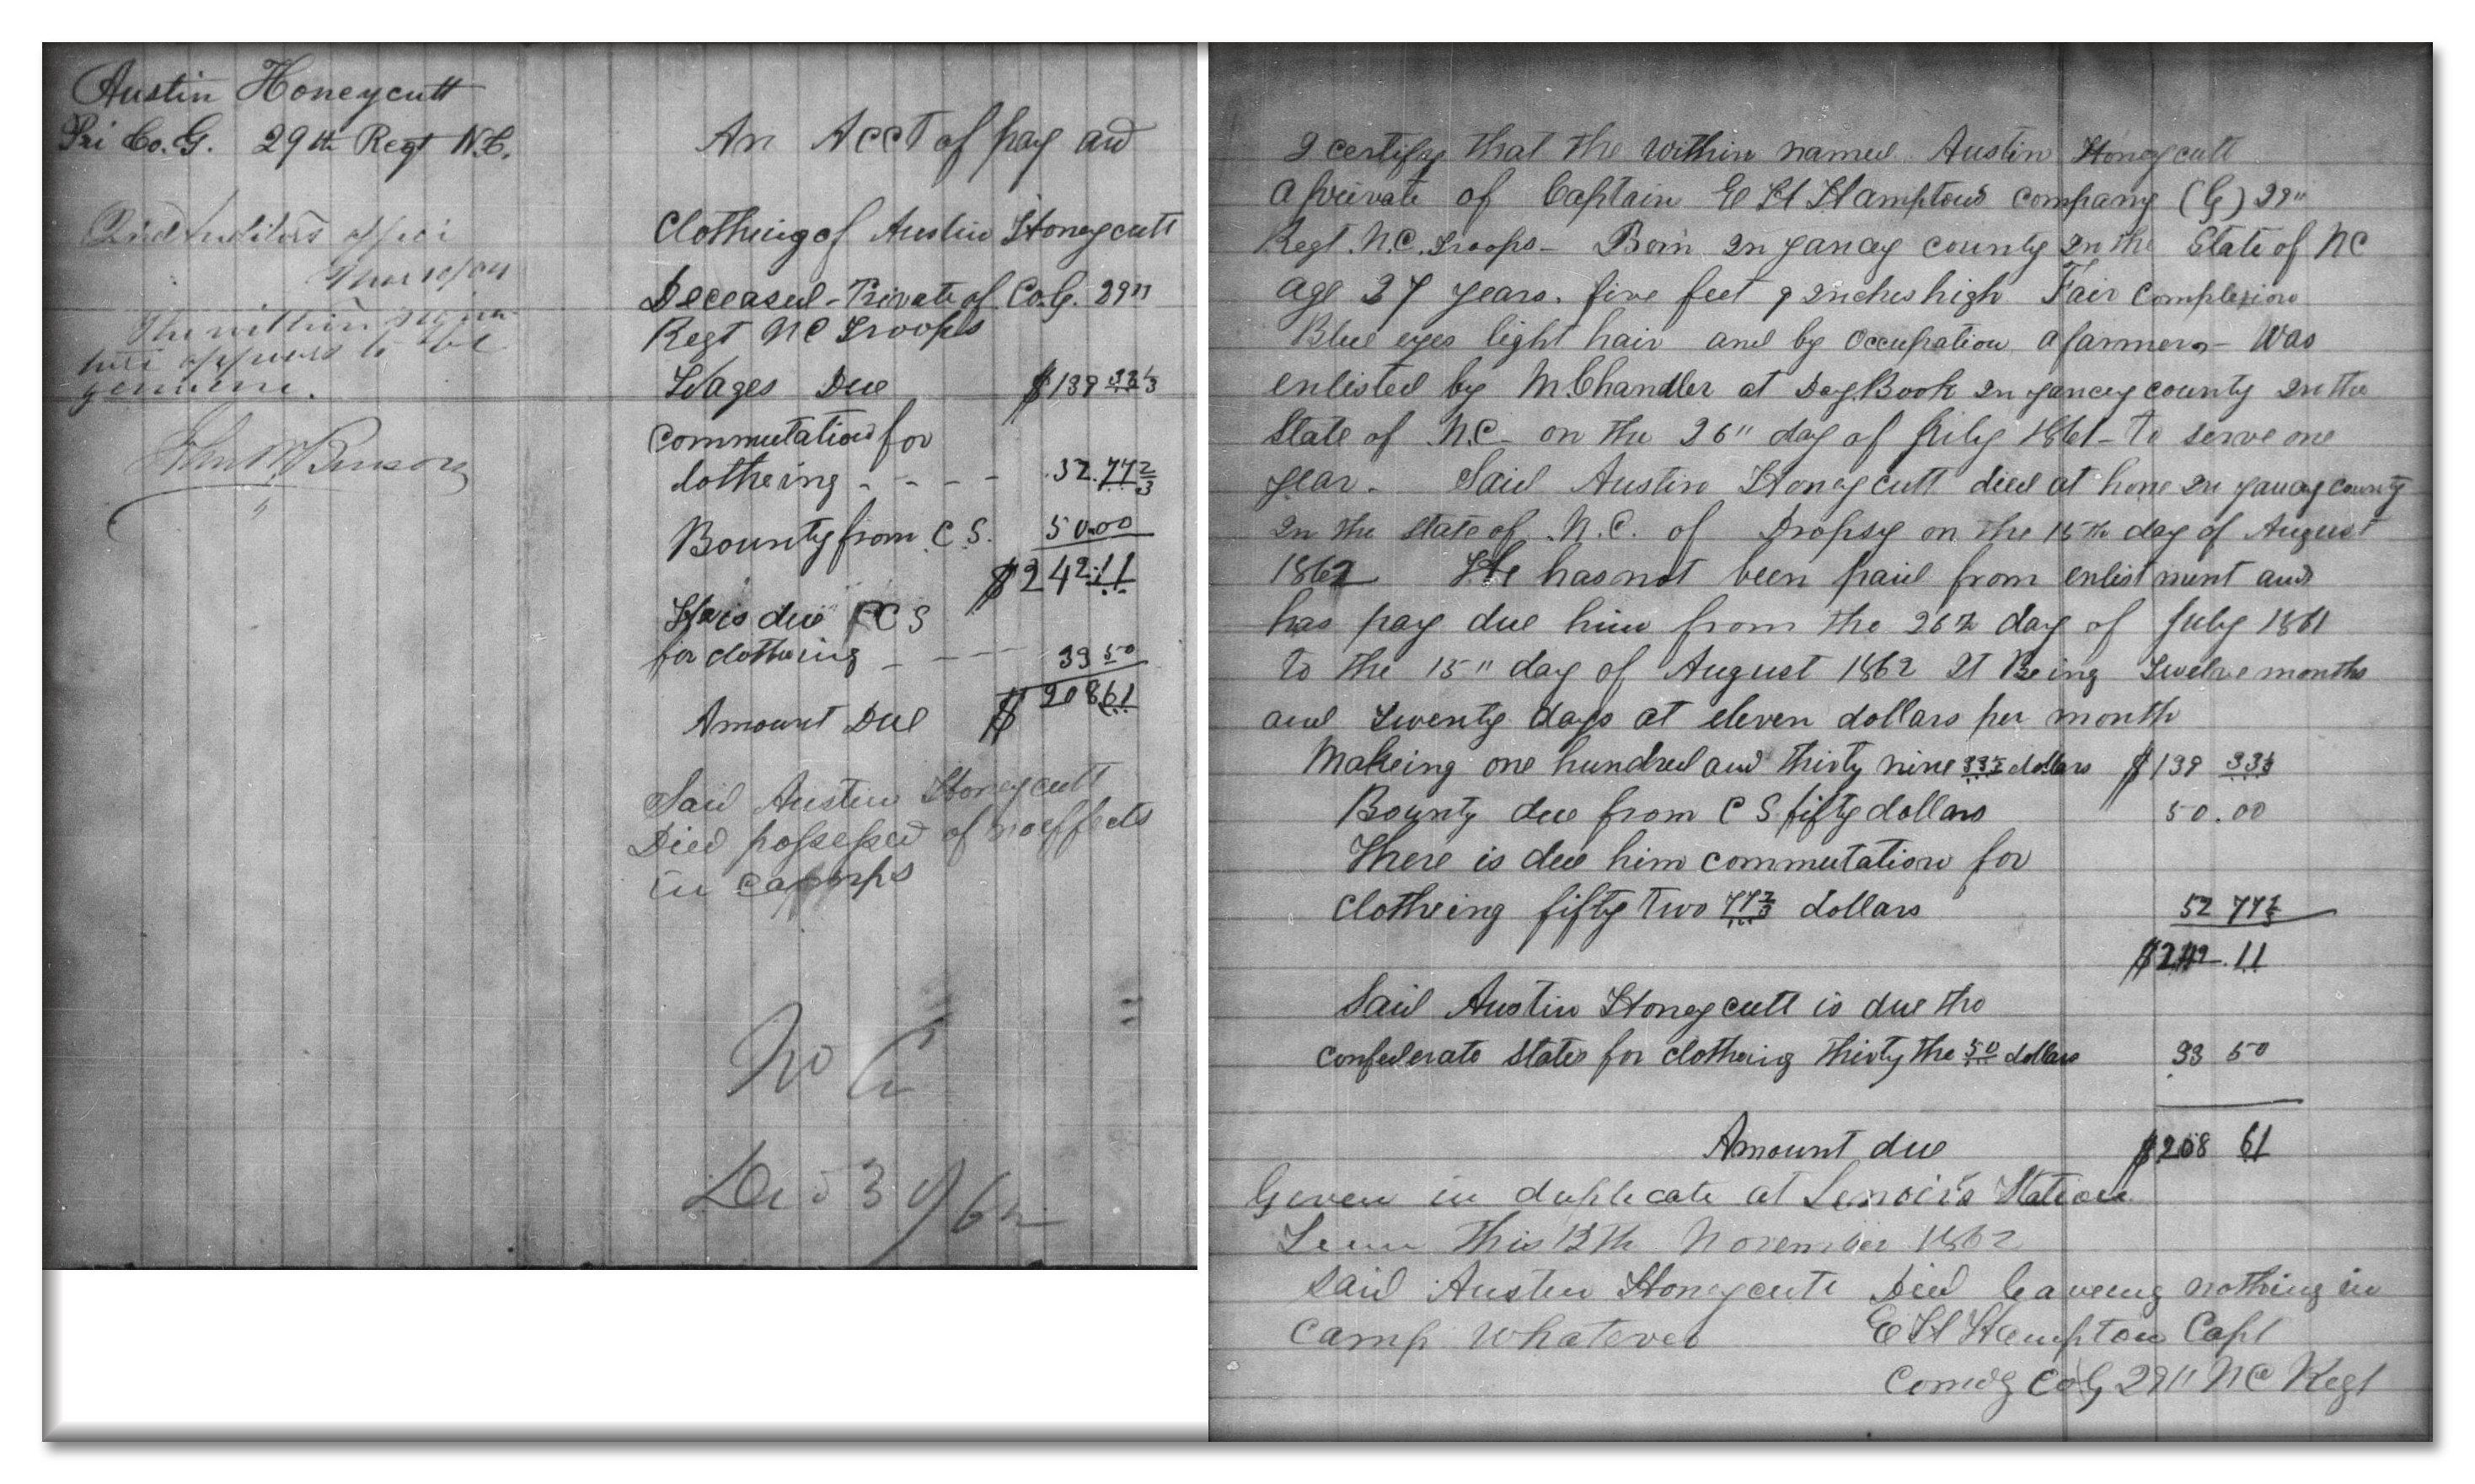 Austin Honeycutt
Pri Co. G. 29th Regt N.C.
genuine.
An Acct of pay and
Clotheing of Austin Honeycutt
Deceased - Private of Co. G. 29"
Regt NC Troops
Wages Due $139 33 1/3
Commutation for
clotheing - - - - 52.77 2/3
Bounty from C. S. 50.00
$242.11
He is due C S
for clotheing - - - 33 50
Amount Due $208 61
Said Austin Honeycutt
Died possessed of no effects
in camps
No C
I certify that the within named Austin Honeycutt
a private of Captain E H Hamptons company (G) 29"
Regt. N.C. Troops - Born in yancy county in the State of NC
age 37 years. five feet 9 inches high Fair complexion
Blue eyes light hair and by occupation a farmer - Was
enlisted by M. Chandler at Day Book in yancey county in the
State of N.C. on the 26" day of July 1861 - to serve one
year. Said Austin Honeycutt died at home in yancy county
in the state of N.C. of Dropsy on the 15th day of August
1862 He has not been paid from enlistment and
has pay due him from the 26th day of July 1861
to the 15" day of August 1862 It Being Twelve months
and Twenty days at eleven dollars per month
Makeing one hundred and thirty nine 33 1/3 dollars $139 33 1/3
Bounty due from C S fifty dollars 50.00
There is due him commutation for
clotheing fifty Two 77 2/3 dollars 52 77 2/3
$242.11
Said Austin Honeycutt is due the
confederate states for clotheing thirty the 50 dollars 33 50
Amount due $208 61
Given in duplicate at Lenoir's Station
Tenn this 13th November 1862
Said Austin Honeycutt Died leaveing nothing in
camp whatever E H Hampton Capt
Comdg Co G 29" NC Regt